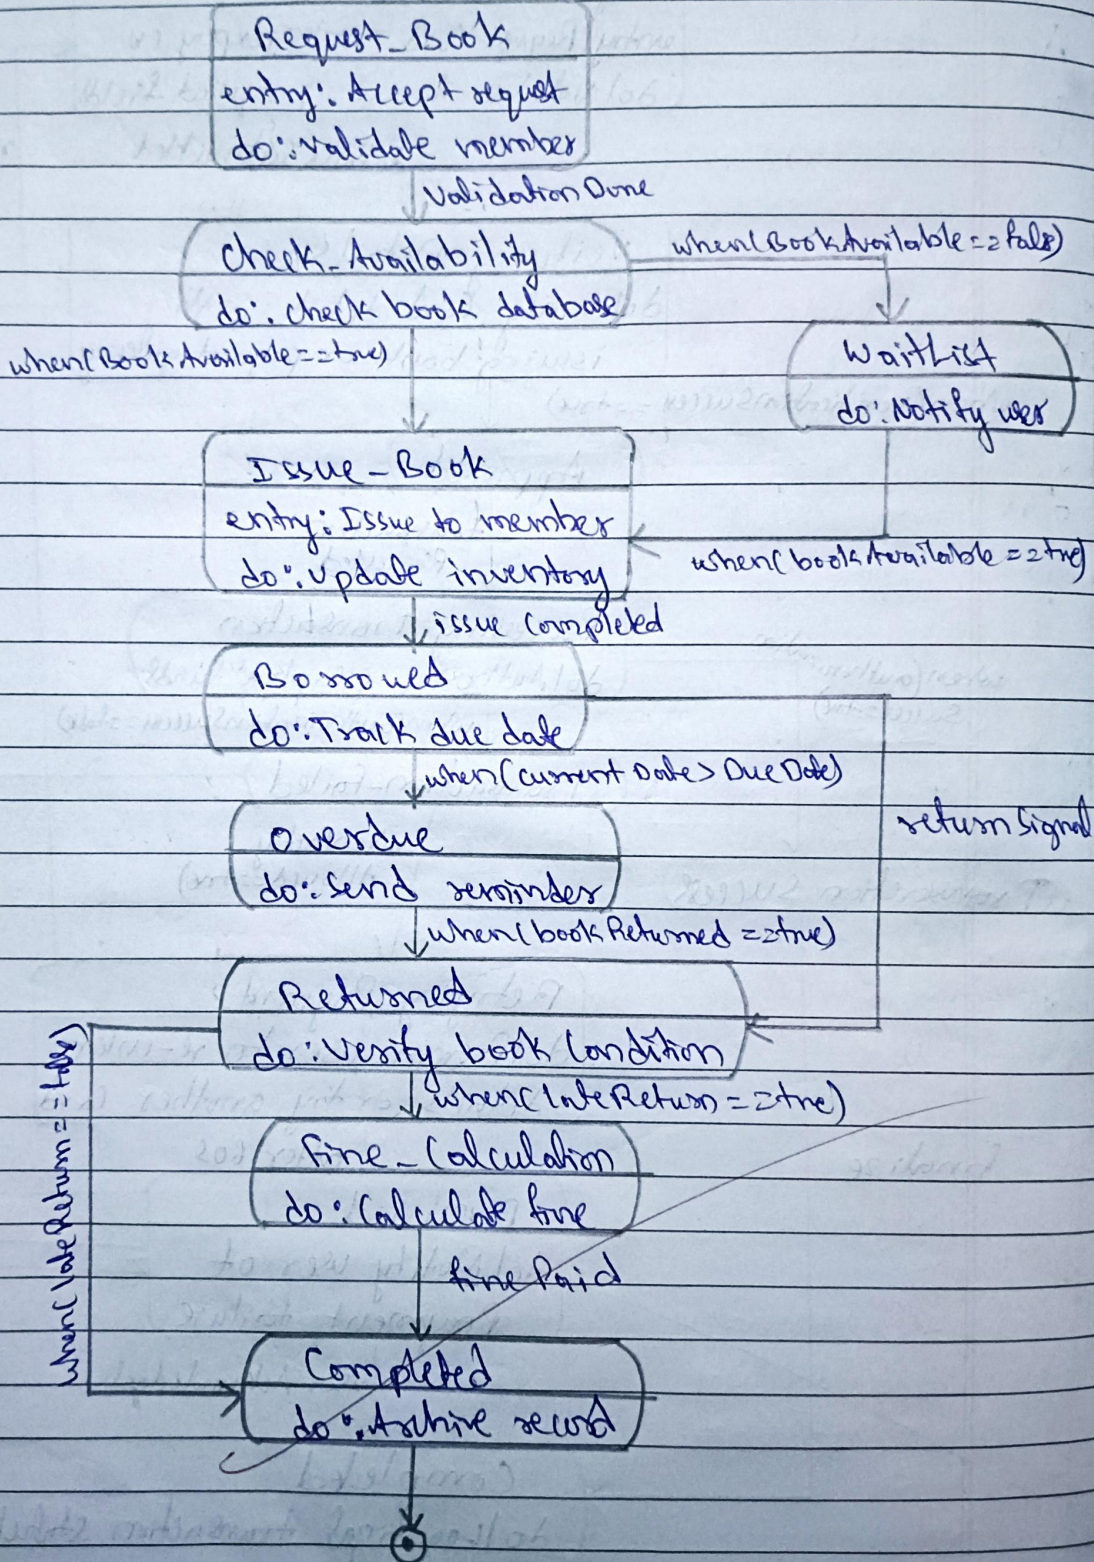 Request_Book
entry: Accept request
do: validate member
Validation Done
Check_Availability
do: check book database
when(BookAvailable==false)
when(BookAvailable==true)
WaitList
do: Notify user
Issue_Book
entry: Issue to member
do: update inventory
when(bookAvailable==true)
issue completed
Borrowed
do: Track due date
when(current Date > Due Date)
return Signal
Overdue
do: Send reminder
when(bookReturned==true)
Returned
do: Verify book Condition
when(lateReturn==false)
when(lateReturn==true)
Fine_Calculation
do: Calculate fine
fine Paid
Completed
do: Archive record